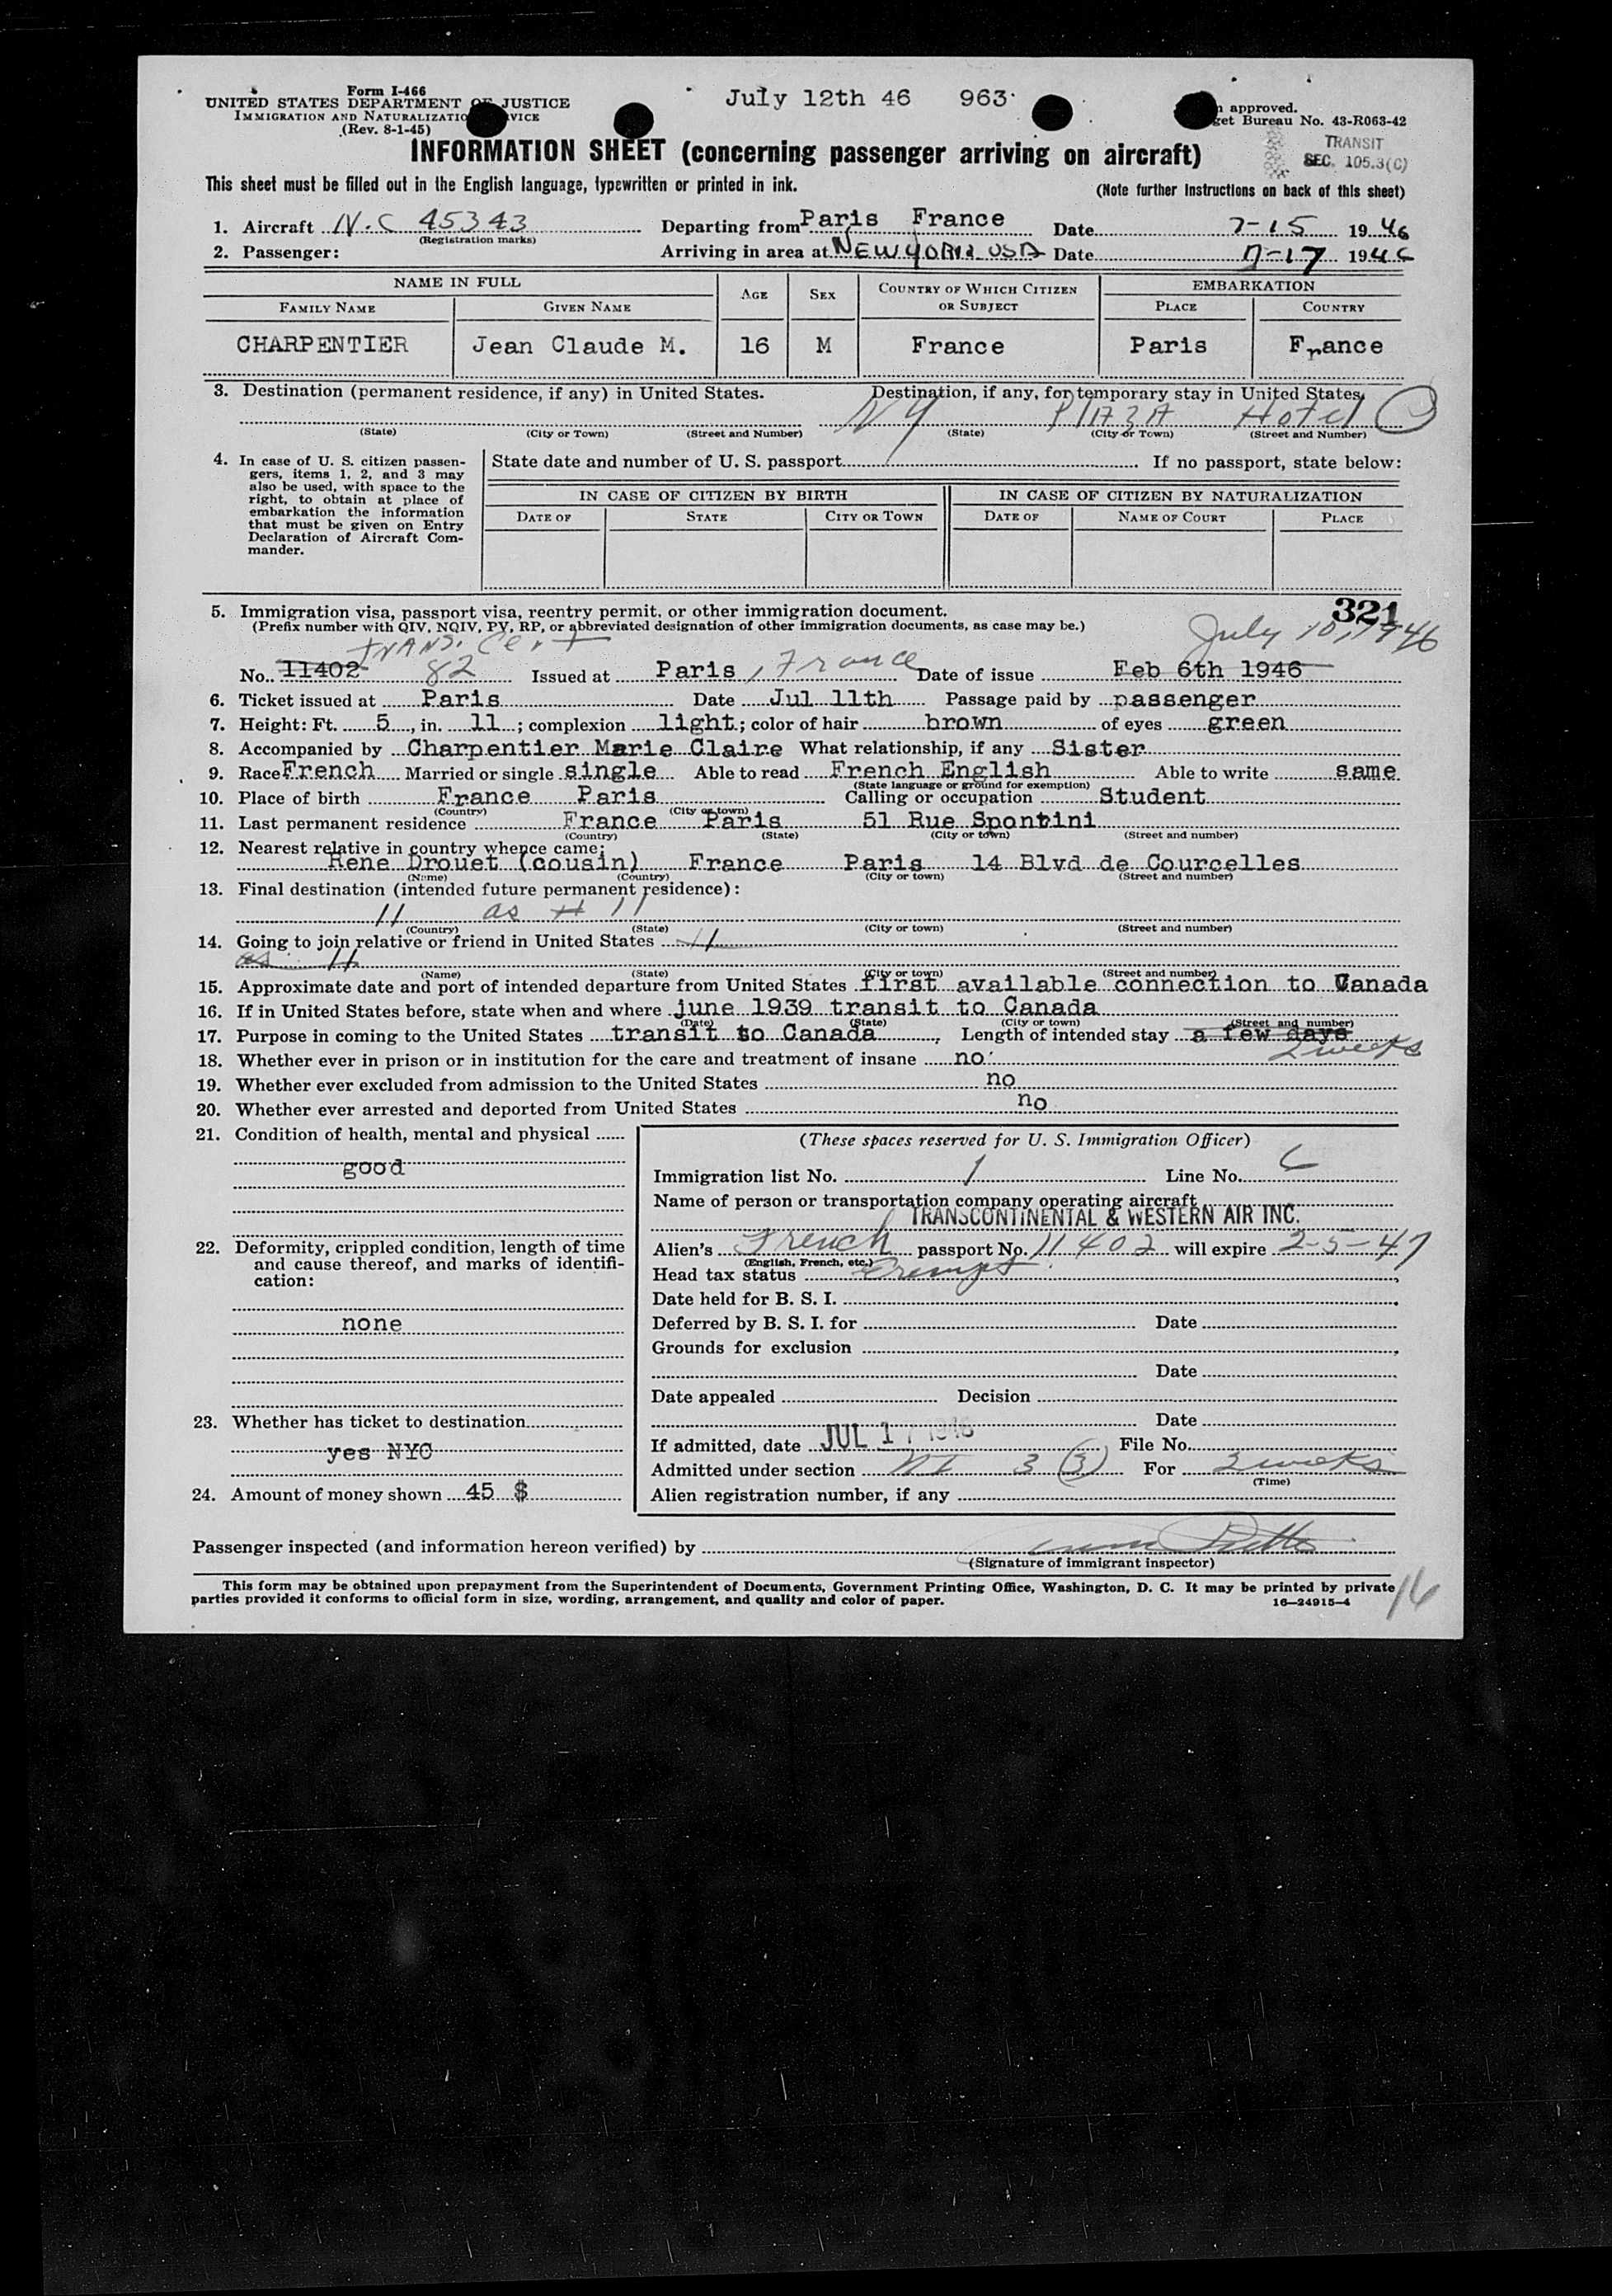 Form I-466
UNITED STATES DEPARTMENT OF JUSTICE
IMMIGRATION AND NATURALIZATION SERVICE
(Rev. 8-1-45)
July 12th 46 963
approved.
Bureau No. 43-R063-42
TRANSIT
SEC. 105.3(C)
INFORMATION SHEET (concerning passenger arriving on aircraft)
This sheet must be filled out in the English language, typewritten or printed in ink.
(Note further instructions on back of this sheet)
1. Aircraft N.C 45343 Departing from Paris France Date 7-15 1946
(Registration marks)
2. Passenger: Arriving in area at NEW YORK USA Date 7-17 1946
NAME IN FULL AGE SEX COUNTRY OF WHICH CITIZEN OR SUBJECT EMBARKATION
FAMILY NAME GIVEN NAME PLACE COUNTRY
CHARPENTIER Jean Claude M. 16 M France Paris France
3. Destination (permanent residence, if any) in United States. Destination, if any, for temporary stay in United States.
NY PLAZA Hotel
(State) (City or Town) (Street and Number) (State) (City or Town) (Street and Number)
4. In case of U. S. citizen passen-
gers, items 1, 2, and 3 may
also be used, with space to the
right, to obtain at place of
embarkation the information
that must be given on Entry
Declaration of Aircraft Com-
mander.
State date and number of U. S. passport If no passport, state below:
IN CASE OF CITIZEN BY BIRTH IN CASE OF CITIZEN BY NATURALIZATION
DATE OF STATE CITY OR TOWN DATE OF NAME OF COURT PLACE
321
5. Immigration visa, passport visa, reentry permit, or other immigration document.
(Prefix number with QIV, NQIV, PV, RP, or abbreviated designation of other immigration documents, as case may be.)
TRANS. Cert July 10, 1946
No. 11402 82 Issued at Paris, France Date of issue Feb 6th 1946
6. Ticket issued at Paris Date Jul 11th Passage paid by passenger
7. Height: Ft. 5, in. 11; complexion light; color of hair brown of eyes green
8. Accompanied by Charpentier Marie Claire What relationship, if any Sister
9. Race French Married or single single Able to read French English Able to write same
(State language or ground for exemption)
10. Place of birth France Paris Calling or occupation Student
(Country) (City or town)
11. Last permanent residence France Paris 51 Rue Spontini
(Country) (State) (City or town) (Street and number)
12. Nearest relative in country whence came:
Rene Drouet (cousin) France Paris 14 Blvd de Courcelles
(Name) (Country) (City or town) (Street and number)
13. Final destination (intended future permanent residence):
11 as # 11
(Country) (State) (City or town) (Street and number)
14. Going to join relative or friend in United States 11
as 11
(Name) (State) (City or town) (Street and number)
15. Approximate date and port of intended departure from United States first available connection to Canada
16. If in United States before, state when and where june 1939 transit to Canada
(Date) (State) (City or town) (Street and number)
17. Purpose in coming to the United States transit to Canada, Length of intended stay a few days
2 weeks
18. Whether ever in prison or in institution for the care and treatment of insane no
19. Whether ever excluded from admission to the United States no
20. Whether ever arrested and deported from United States no
21. Condition of health, mental and physical
good
22. Deformity, crippled condition, length of time
and cause thereof, and marks of identifi-
cation:
none
23. Whether has ticket to destination
yes NYC
24. Amount of money shown 45 $
(These spaces reserved for U. S. Immigration Officer)
Immigration list No. 1 Line No. 6
Name of person or transportation company operating aircraft
TRANSCONTINENTAL & WESTERN AIR INC.
Alien's French passport No. 11402 will expire 2-5-47
(English, French, etc.)
Head tax status Exempt
Date held for B. S. I.
Deferred by B. S. I. for Date
Grounds for exclusion
Date
Date appealed Decision
Date
If admitted, date JUL 17 1946 File No.
Admitted under section 3 (3) For 2 weeks
(Time)
Alien registration number, if any
Passenger inspected (and information hereon verified) by
(Signature of immigrant inspector)
This form may be obtained upon prepayment from the Superintendent of Documents, Government Printing Office, Washington, D. C. It may be printed by private
parties provided it conforms to official form in size, wording, arrangement, and quality and color of paper.
16—24915-4
16